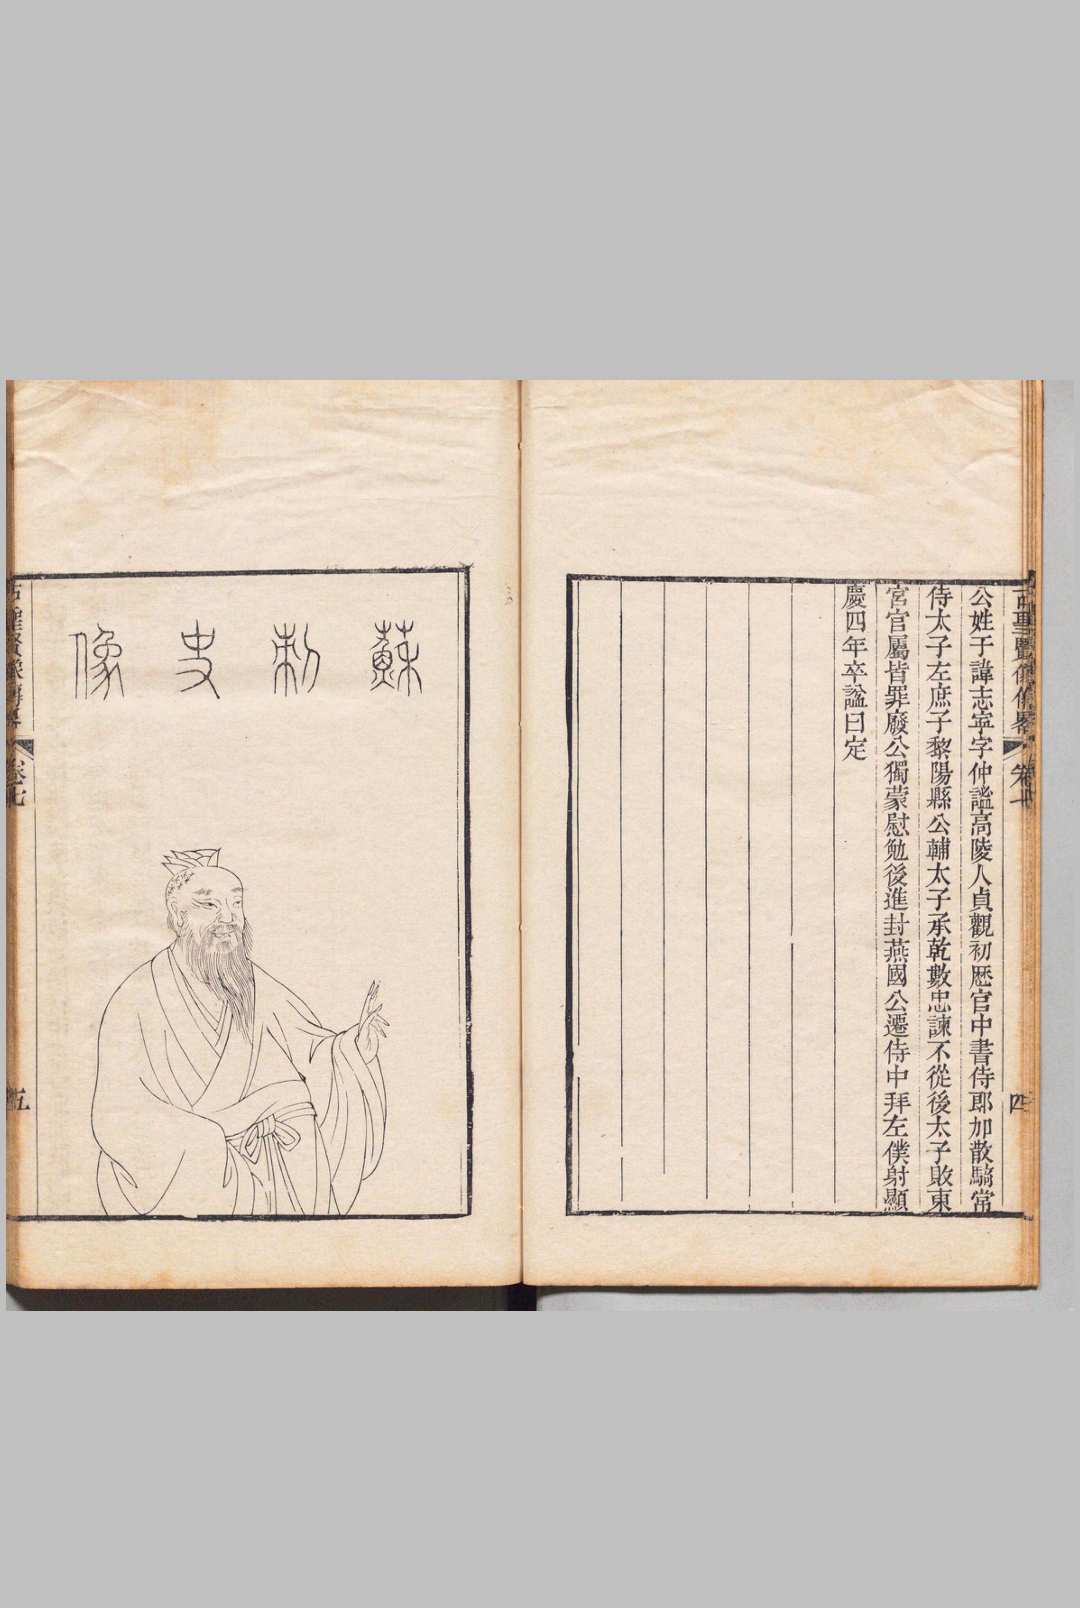 古聖賢像傳畧 卷七 四
公姓于諱志寧字仲謐高陵人貞觀初歷官中書侍郎加散騎常
侍太子左庶子黎陽縣公輔太子承乾數忠諫不從後太子敗東
宮官屬皆罪廢公獨蒙慰勉後進封燕國公遷侍中拜左僕射顯
慶四年卒謚曰定
蘇刺史像
古聖賢像傳畧 卷七 五